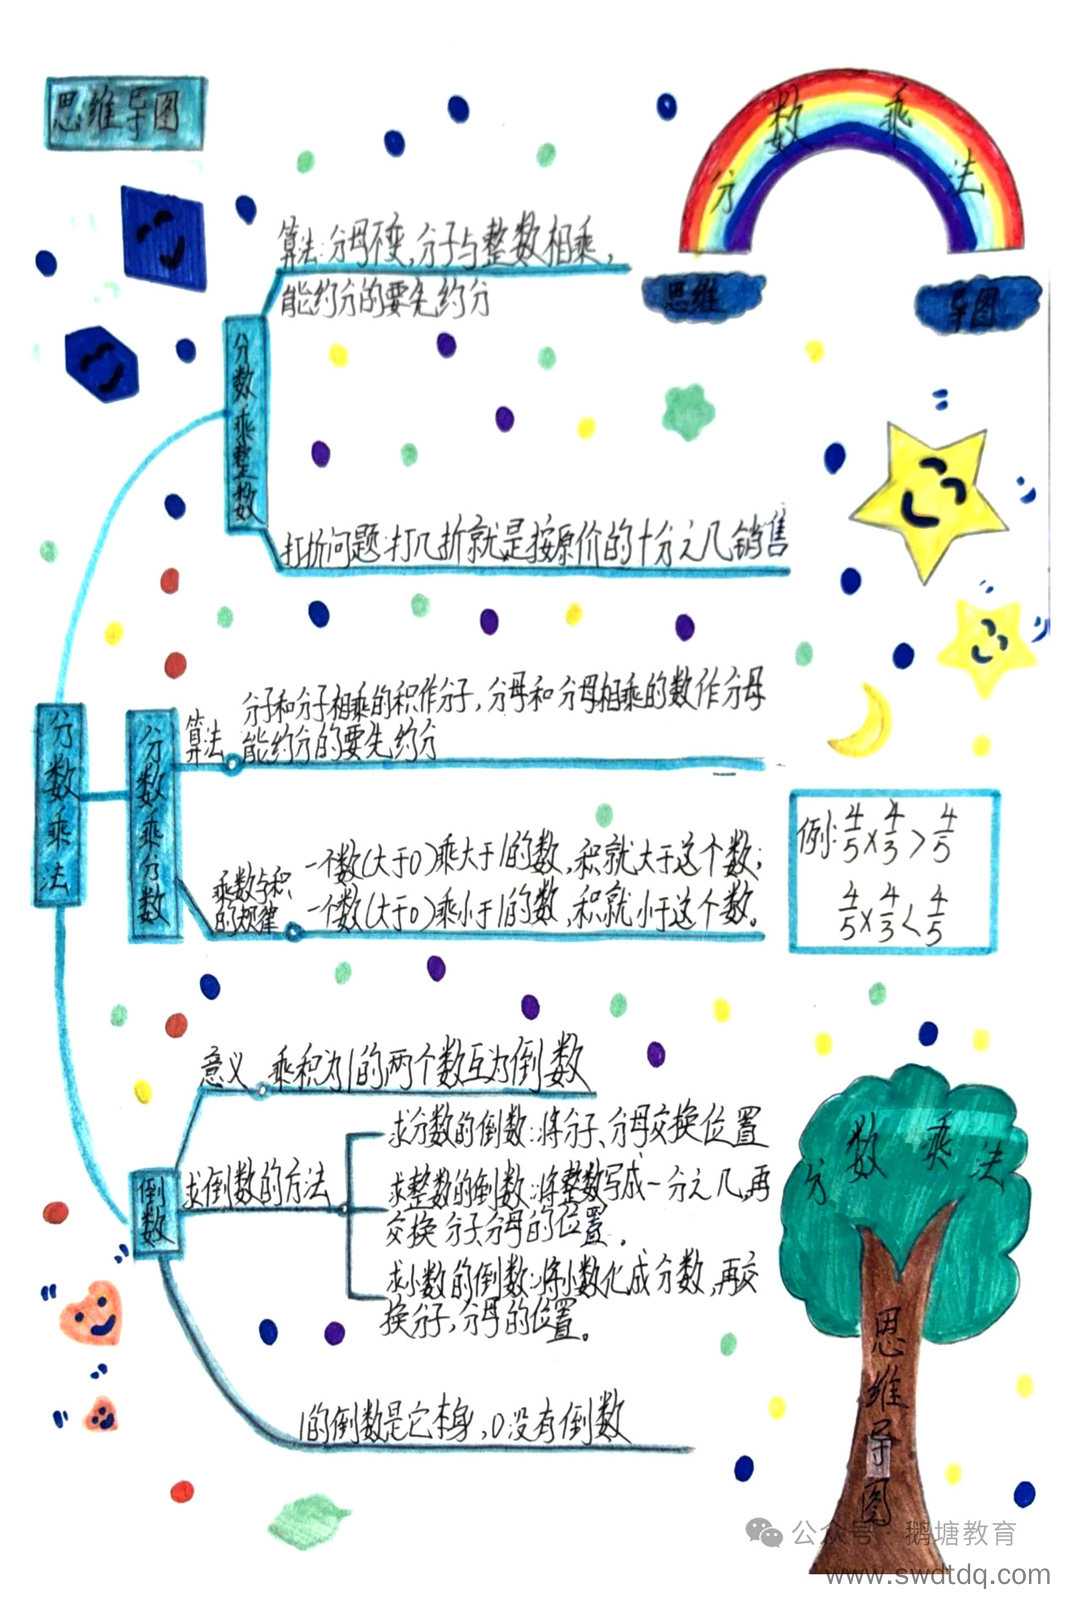 思维导图
分数乘法
思维
导图
算法:分母不变,分子与整数相乘,
能约分的要先约分
分数乘整数
打折问题:打几折就是按原价的十分之几销售
分数乘法
分数乘分数
算法
分子和分子相乘的积作分子,分母和分母相乘的数作分母
能约分的要先约分
乘数与积
的规律
一个数(大于0)乘大于1的数,积就大于这个数;
一个数(大于0)乘小于1的数,积就小于这个数。
例:4/5×4/3>4/5
4/5×4/3<4/5
意义 乘积为1的两个数互为倒数
倒数
求倒数的方法
求分数的倒数:将分子、分母交换位置
求整数的倒数:将整数写成一分之几,再
交换分子分母的位置。
求小数的倒数:将小数化成分数,再交
换分子,分母的位置。
1的倒数是它本身,0没有倒数
分数乘法
思维导图
公众号 鹅塘教育
www.swdtdq.com